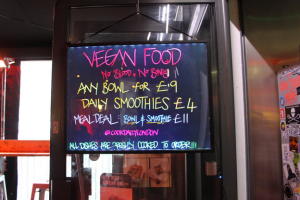 VEGAN FOOD
No Blood, No Bones
ANY BOWL FOR £9
DAILY SMOOTHIES £4
MEAL DEAL: BOWL & SMOOTHIE £11
ALL DISHES ARE FRESHLY COOKED TO ORDER!!!